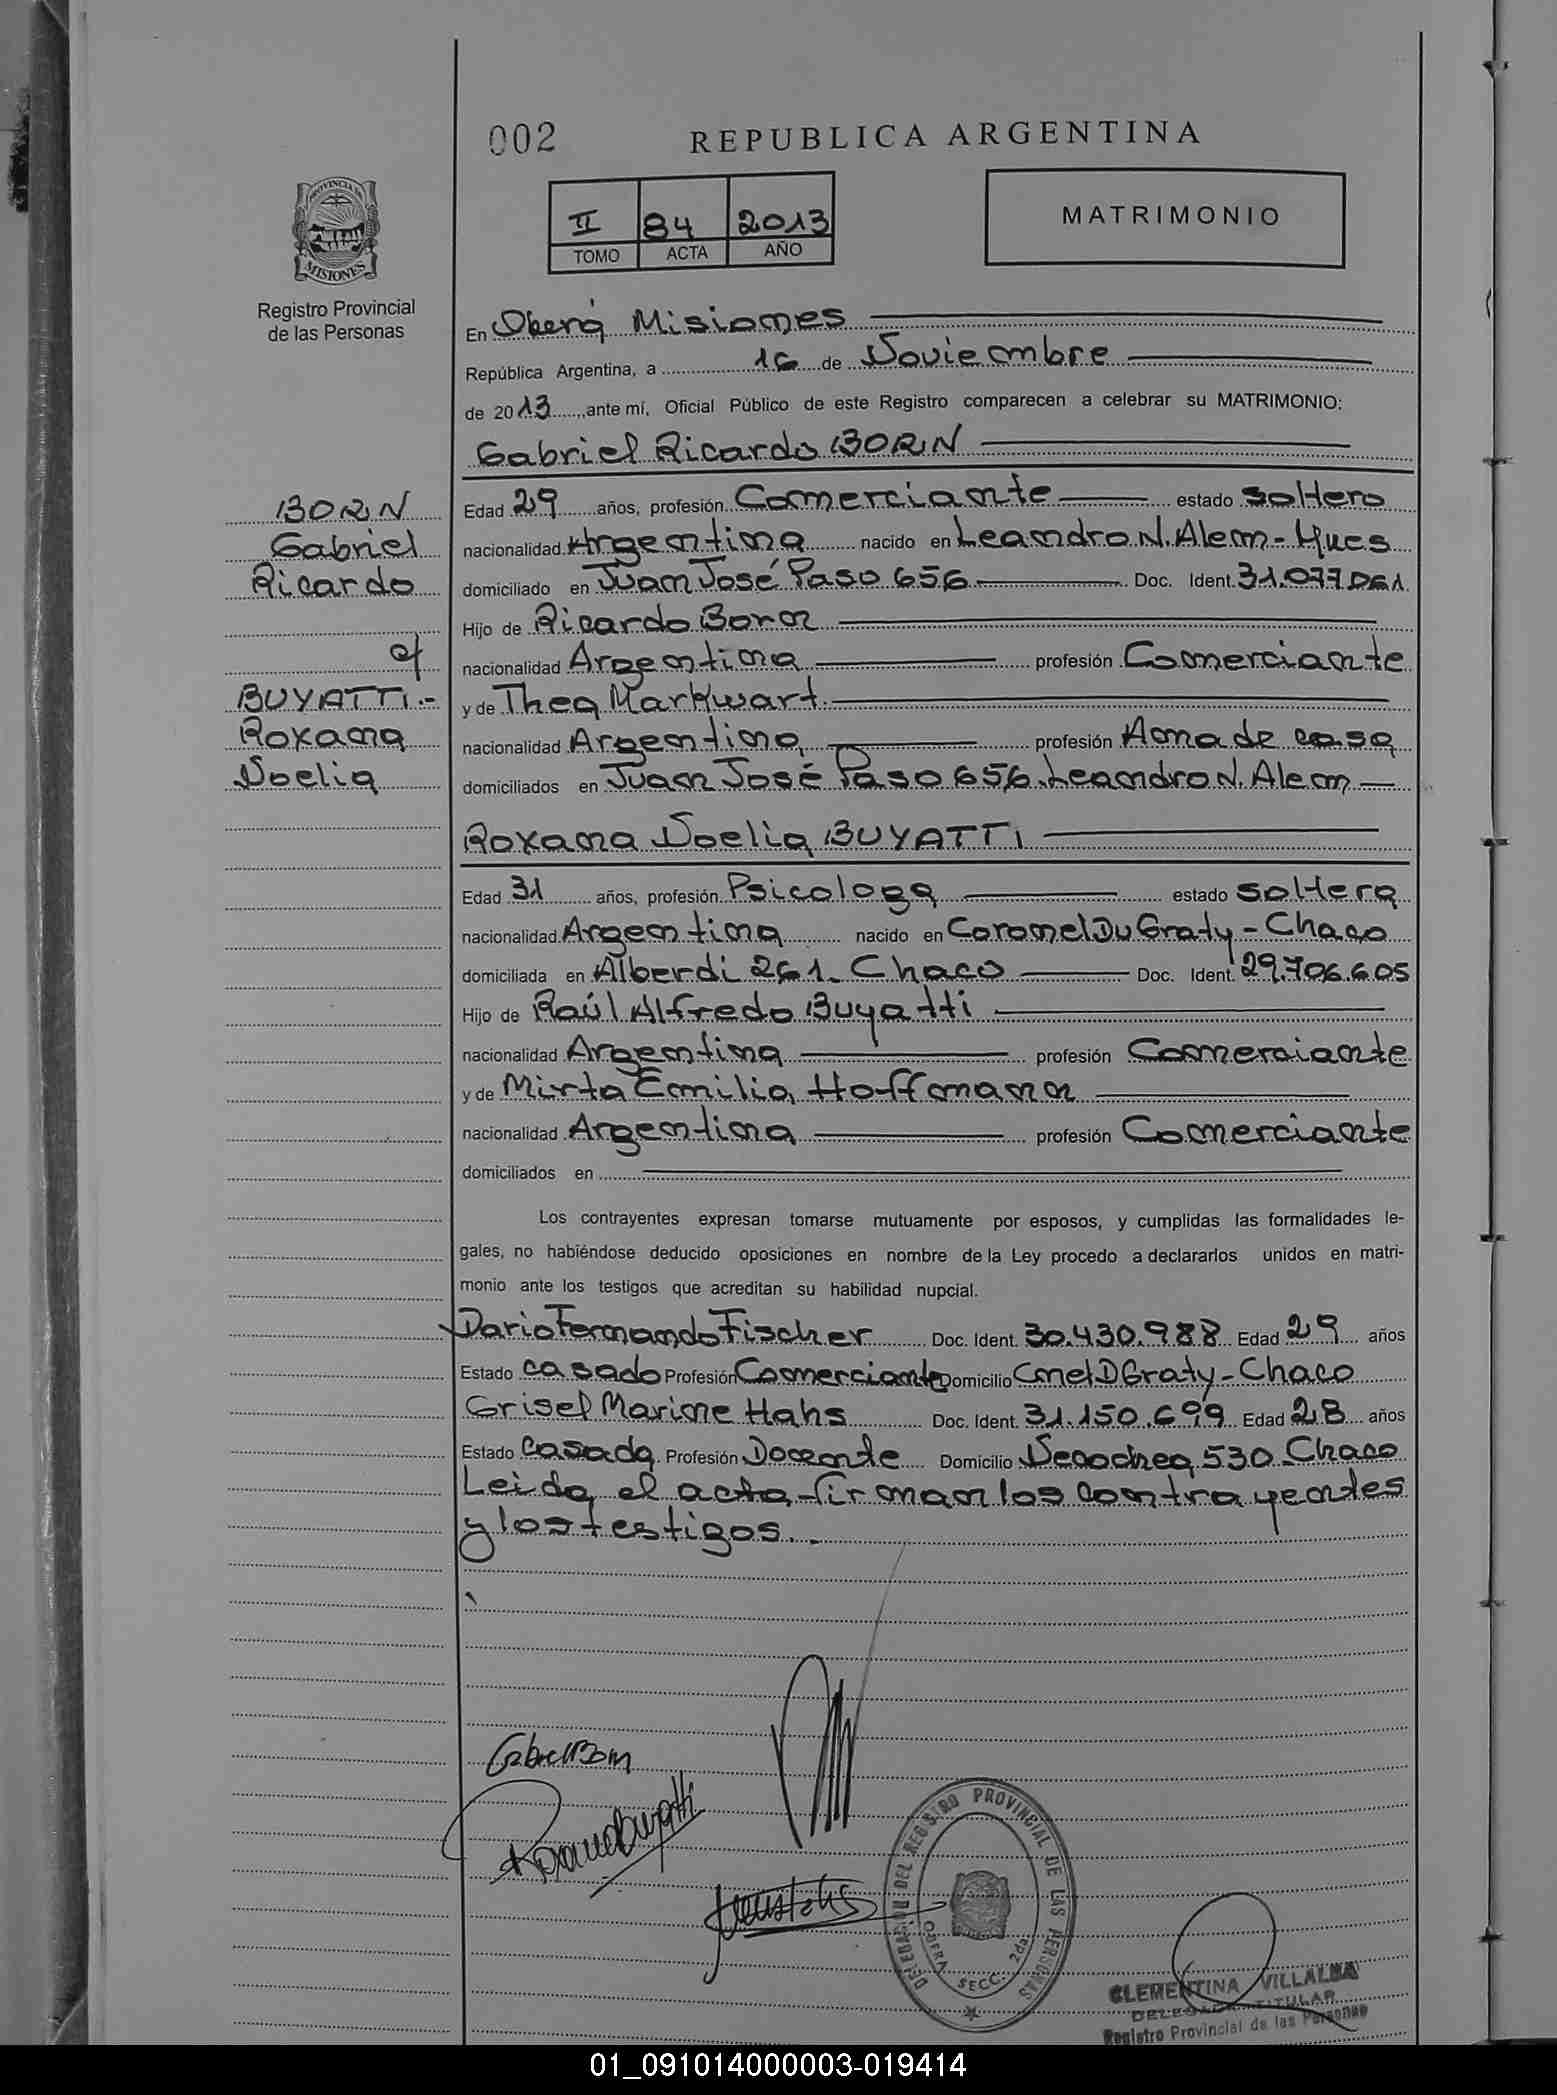 002
REPUBLICA ARGENTINA
PROVINCIA DE
MISIONES
Registro Provincial
de las Personas
II 84 2013
TOMO ACTA AÑO
MATRIMONIO
En Oberá Misiones
República Argentina, a 16 de Noviembre
de 2013, ante mí, Oficial Público de este Registro comparecen a celebrar su MATRIMONIO:
Gabriel Ricardo BORN
BORN
Gabriel
Ricardo
c/
BUYATTI.-
Roxana
Noelia
Edad 29 años, profesión Comerciante estado soltero
nacionalidad Argentina nacido en Leandro N. Alem - Mnes
domiciliado en Juan José Paso 656 Doc. Ident. 31.077.061
Hijo de Ricardo Born
nacionalidad Argentina profesión Comerciante
y de Thea Markwart
nacionalidad Argentina profesión Ama de casa
domiciliados en Juan José Paso 656. Leandro N. Alem
Roxana Noelia BUYATTI
Edad 31 años, profesión Psicologa estado soltera
nacionalidad Argentina nacido en Coronel Du Graty - Chaco
domiciliada en Alberdi 261. Chaco Doc. Ident. 29.706.605
Hijo de Raúl Alfredo Buyatti
nacionalidad Argentina profesión Comerciante
y de Mirta Emilia Hoffmann
nacionalidad Argentina profesión Comerciante
domiciliados en
Los contrayentes expresan tomarse mutuamente por esposos, y cumplidas las formalidades le-
gales, no habiéndose deducido oposiciones en nombre de la Ley procedo a declararlos unidos en matri-
monio ante los testigos que acreditan su habilidad nupcial.
Dario Fernando Fischer Doc. Ident. 30.430.988 Edad 29 años
Estado casado Profesión Comerciante Domicilio Cnel D Graty - Chaco
Grisel Marine Hahs Doc. Ident. 31.150.699 Edad 28 años
Estado Casada Profesión Docente Domicilio Necochea 530 Chaco
Leida el acta firman los contrayentes
y los testigos.-
Gabriel Born
Roxana Buyatti
DELEGACION DEL REGISTRO PROVINCIAL DE LAS PERSONAS
OBERA SECC. 2da
CLEMENTINA VILLALBA
DELEGADA TITULAR
Registro Provincial de las Personas
01_091014000003-019414